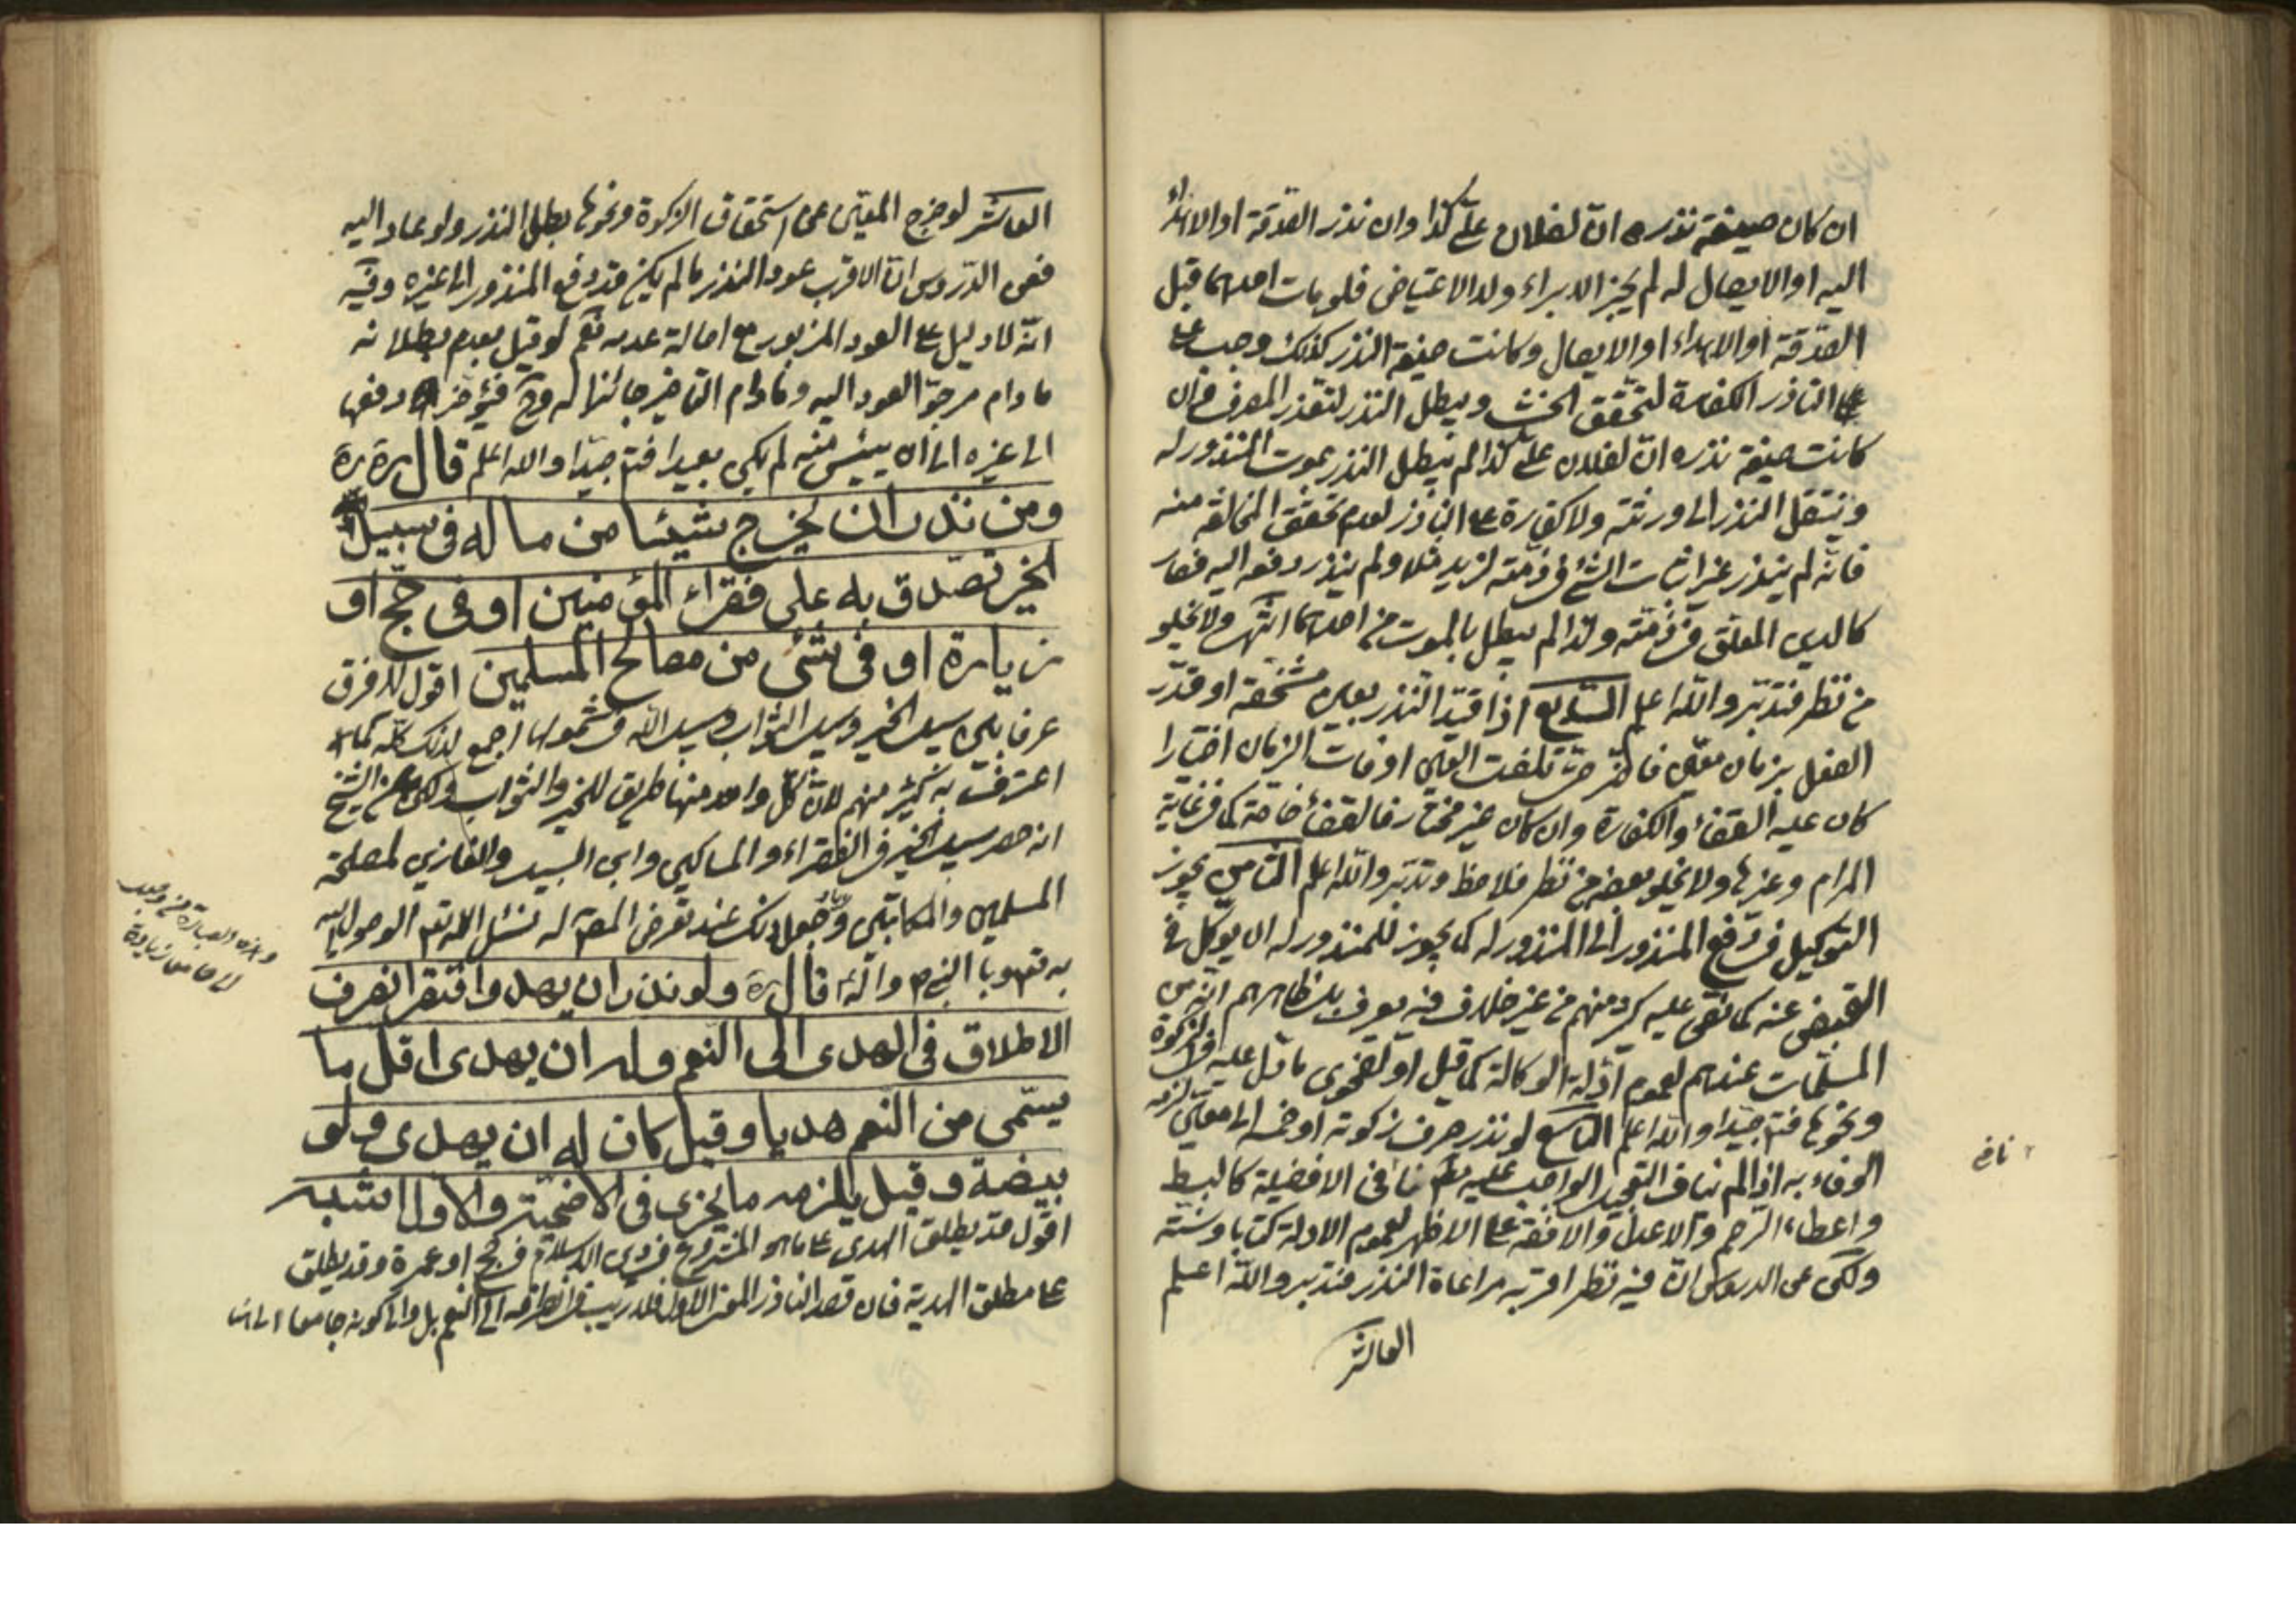 ان كان صيغة نذره ان لفلان علي كذا وان نذر الصدقة او الاهداء
اليه او الايصال له لم يجز الابراء ولا الاعتياض فلو مات احدهما قبل
الصدقة او الاهداء او الايصال وكانت صيغة النذر كذلك وجب على
على الناذر الكفارة لتحقق الحنث ويبطل النذر لتعذر المصرف وان
كانت صيغة نذره ان لفلان علي كذا لم يبطل النذر بموت المنذور له
وينتقل النذر الى ورثته ولا كفارة على الناذر لعدم تحقق المخالفة منه
فانه لم ينذر غير اثبات الشئ في ذمته لزيد مثلا ولم ينذر دفعه اليه فصار
كالدين المعلق في ذمته ولذا لم يبطل بالموت من احدهما انتهى ولا يخلو
من نظر فتدبر والله اعلم السابع اذا قيد النذر بعين مشخصة او قدر
الفعل بزمان معين فاخر حتى تلفت العين او فات الزمان اختيارا
كان عليه القضاء والكفارة وان كان غير مختار فالقضاء خاصة كما في غاية
المرام وغيرها ولا يخلو بعضه من نظر فلاحظ وتدبر والله اعلم الثامن يجوز
التوكيل في دفع المنذور الى المنذور له كما يجوز للمنذور له ان يوكل في
القبض عنه كما نص عليه كرد منهم من غير خلاف فيه يعرف بل ظاهرهم انه من
المسلمات عندهم لعموم ادلة الوكالة كما قيل او لفحوى ما دل عليه في الزكوة
ونحوها فتم جيدا والله اعلم التاسع لو نذر صرف زكوته او خمسه الى معين لزمه
الوفاء به اذا لم يناف التعجيل الواجب عليه نعم نافى الافضلية كالبسط
واعطاء الرحم والاعدل والافقه على الاظهر لعموم الادلة كتابا وسنة
ولكن عن الدروس ان فيه نظر اقربه مراعاة النذر فتدبر والله اعلم
العاشر
العاشر لو خرج المعين عن استحقاق الزكوة ونحوها بطل النذر ولو عاد اليه
ففي الدروس ان الاقرب عود النذر ما لم يكن قد دفع المنذور الى غيره وفيه
انه لا دليل على العود المزبور مع اصالة عدمه نعم لو قيل بعدم بطلانه
ما دام مرجو العود اليه وما دام التاخير جائزا له وح فيؤخر دفعها
الى غيره الى ان ييئس منه لم يكن بعيدا فتم جيدا والله اعلم قال ره
ومن نذر ان يخرج شيئا من ماله في سبيل
الخير تصدق به على فقراء المؤمنين او في حج او
زيارة او في شئ من مصالح المسلمين اقول لا فرق
عرفا بين سبيل الخير وسبيل الثواب وسبيل الله في شمولها اجمع لذلك كله كما
اعترف به كثير منهم لان كل واحد منها طريق للخير والثواب ولكن عن الشيخ
انه حصر سبيل الخير في الفقراء والمساكين وابن السبيل والغارمين لمصلحة
المسلمين والمكاتبين عند تعرض المص له نسئل الله تع الوصول اليه
بالنبي ص واله قال ره ولو نذر ان يهدي واقتصر انصرف
الاطلاق في الهدى الى النعم وله ان يهدى اقل ما
يسمى من النعم هديا وقيل كان له ان يهدى ولو
بيضة وقيل يلزمه ما يجزى في الاضحية والاول اشبه
اقول قد يطلق الهدي على ما هو المشروع في دين الاسلام في حج او عمرة وقد يطلق
على مطلق الهدية فان قصد الناذر المعنى الاول فلا ريب في انصرافه الى النعم بل والى كونه جامعا